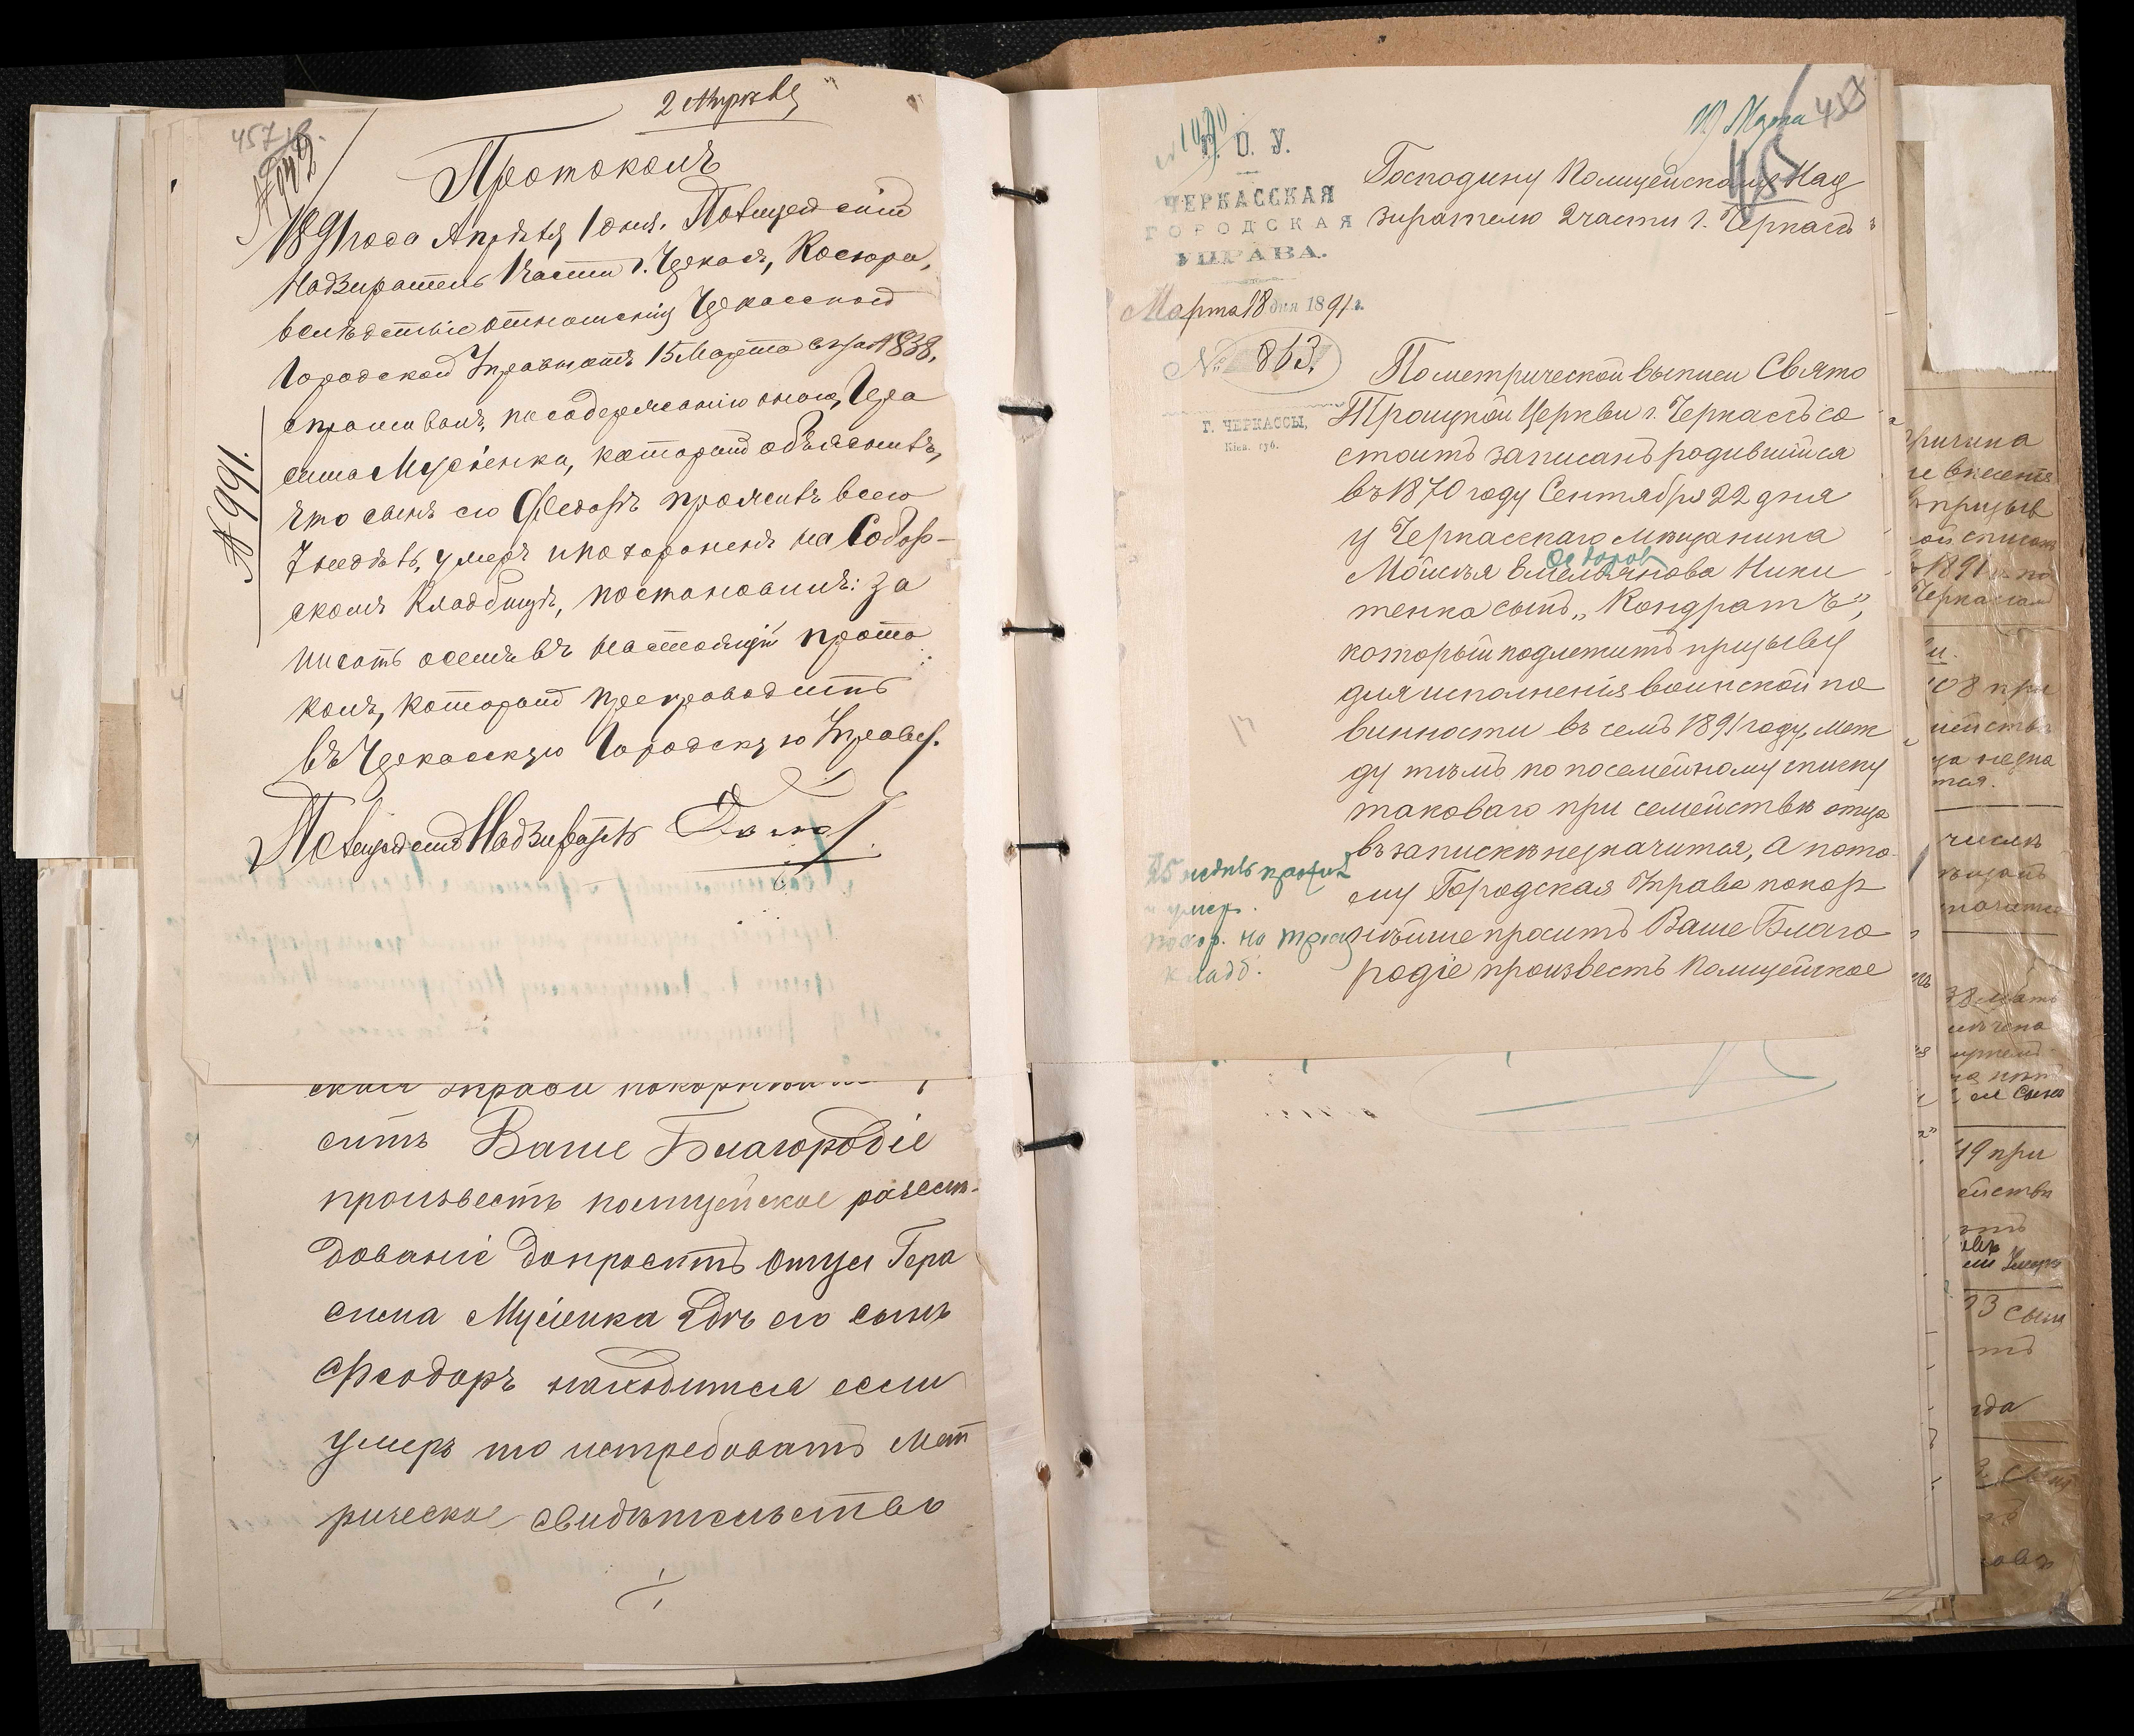 2 Апрѣля
457
Протоколъ
1891 года Апрѣля 1 дня. Полицейскій
Надзиратель 1 части г. Черкасъ, Косюра,
вслѣдствіе отношенія Черкасской
Городской Управы отъ 15 Марта за № 838,
спрашивалъ, по содержанію оного, Гера
сима Мусіенка, который объяснилъ,
что сынъ его Федоръ проживъ всего
7 недѣль, умеръ и похороненъ на Собор-
скомъ Кладбищѣ, постановилъ: за
писать осемъ въ настоящій прото
колъ, который препроводить
въ Черкасскую Городскую Управу.
Полицейскій Надзиратель
№ 991.
сить Ваше Благородіе
произвесть полицейское разслѣ-
дованіе допросить отца Гера
сима Мусіенка гдѣ его сынъ
Феодоръ находится если
умеръ то истребовать мет
рическое свидѣтельство
Г. О. У.
ЧЕРКАССКАЯ
ГОРОДСКАЯ
УПРАВА.
Марта 18 дня 1891 г.
№ 863.
Г. ЧЕРКАССЫ,
Кіев. губ.
19 Марта
458
Господину Полицейскому Над
зирателю 2 части г. Черкассъ
По метрической выписи Свято
Троицкой Церкви г. Черкассъ со
стоитъ записанъ родившійся
въ 1870 году Сентября 22 дня
у Черкасскаго мѣщанина
Федоров
Мойсѣя Емельянова Ники
тенка сынъ „Кондратъ",
который подлежитъ призыву
для исполненія воинской по
винности въ семъ 1891 году, меж
ду тѣмъ по посемейному списку
таковаго при семействѣ отца
въ запискѣ не значится, а пото
му Городская Управа покор
нѣйше проситъ Ваше Благо
родіе произвесть полицейское
25 недѣль прожил
и умер.
похор. на троиц
кладб.